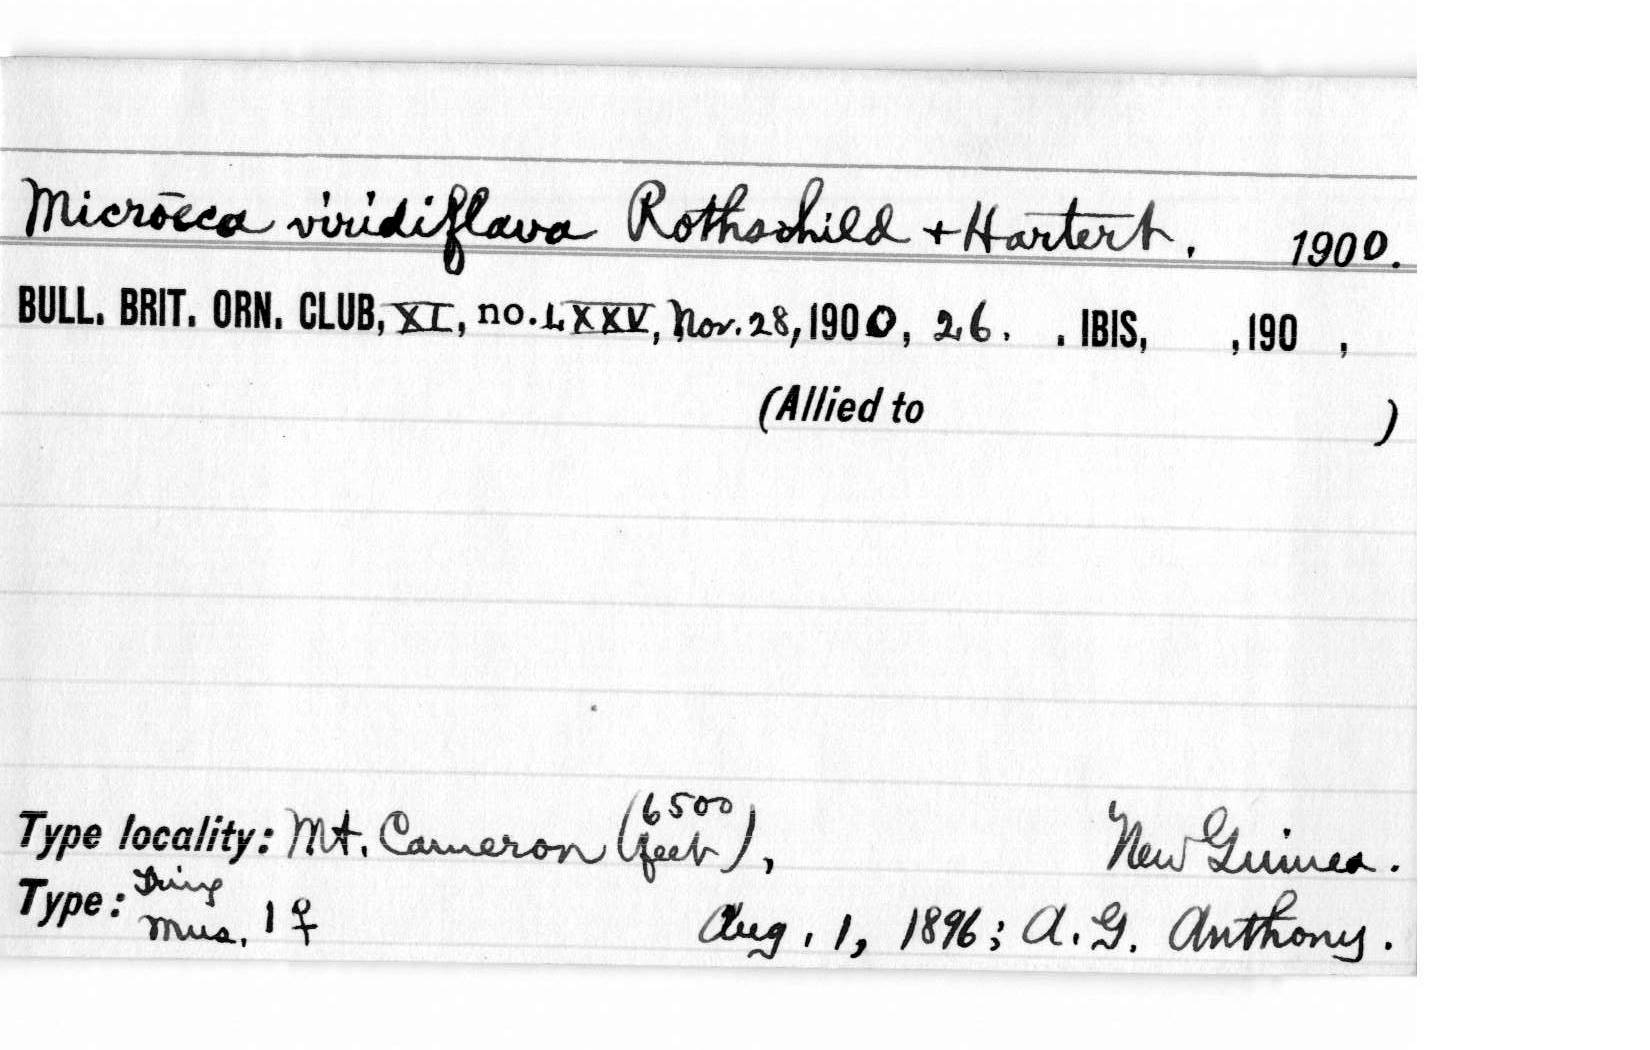 Microēca viridiflava Rothschild + Hartert. 1900.
BULL. BRIT. ORN. CLUB, XI, no. LXXV, Nov. 28, 1900, 26. . IBIS, , 190 ,
(Allied to )
Type locality: Mt. Cameron (6500 feet), New Guinea.
Type: Tring Mus. 1 ♀ Aug. 1, 1896; A. G. Anthony.